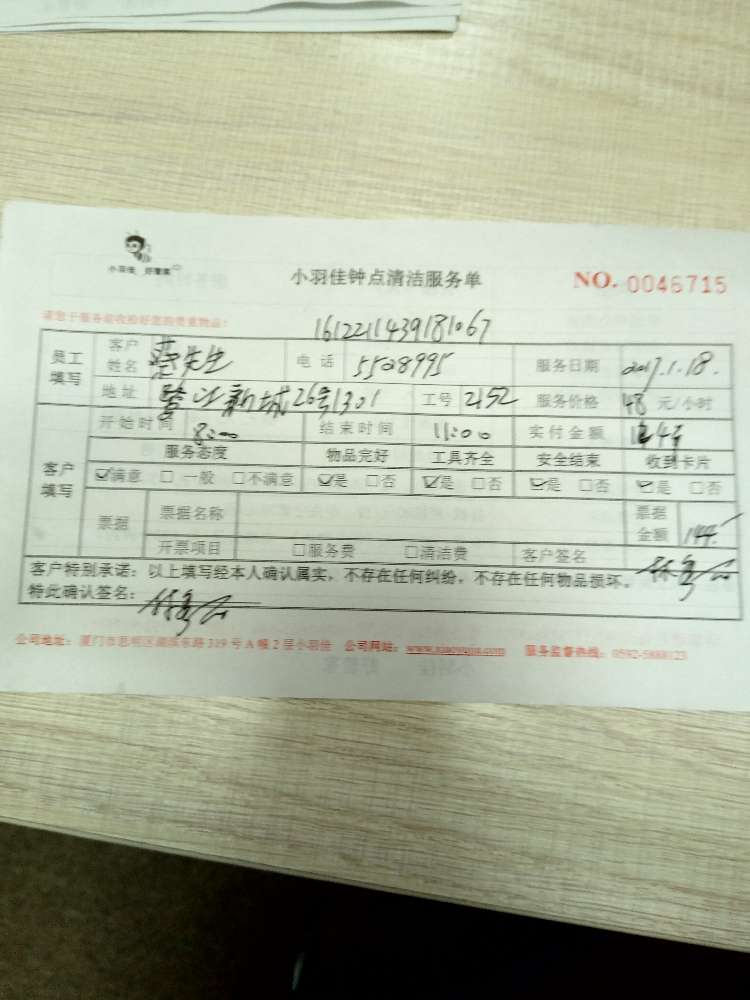 小羽佳 好管家
小羽佳钟点清洁服务单
NO. 0046715
请您于服务前收拾好您的贵重物品:
1612211439181067
员工填写 客户姓名 先生 电话 5528995 服务日期 2017.1.18.
地址 新城26号1301 工号 2152 服务价格 48 元/小时
客户填写 开始时间 8:00 结束时间 11:00 实付金额
服务态度 物品完好 工具齐全 安全结束 收到卡片
☑满意 □一般 □不满意 ☑是 □否 ☑是 □否 ☑是 □否 ☑是 □否
票据 票据名称 票据金额 144.
开票项目 □服务费 □清洁费 客户签名
客户特别承诺:以上填写经本人确认属实,不存在任何纠纷,不存在任何物品损坏。
特此确认签名:
公司地址:厦门市思明区湖滨东路 319 号 A 幢 2 层小羽佳 公司网站:www.xiaoyujia.com 服务监督热线:0592-5888123